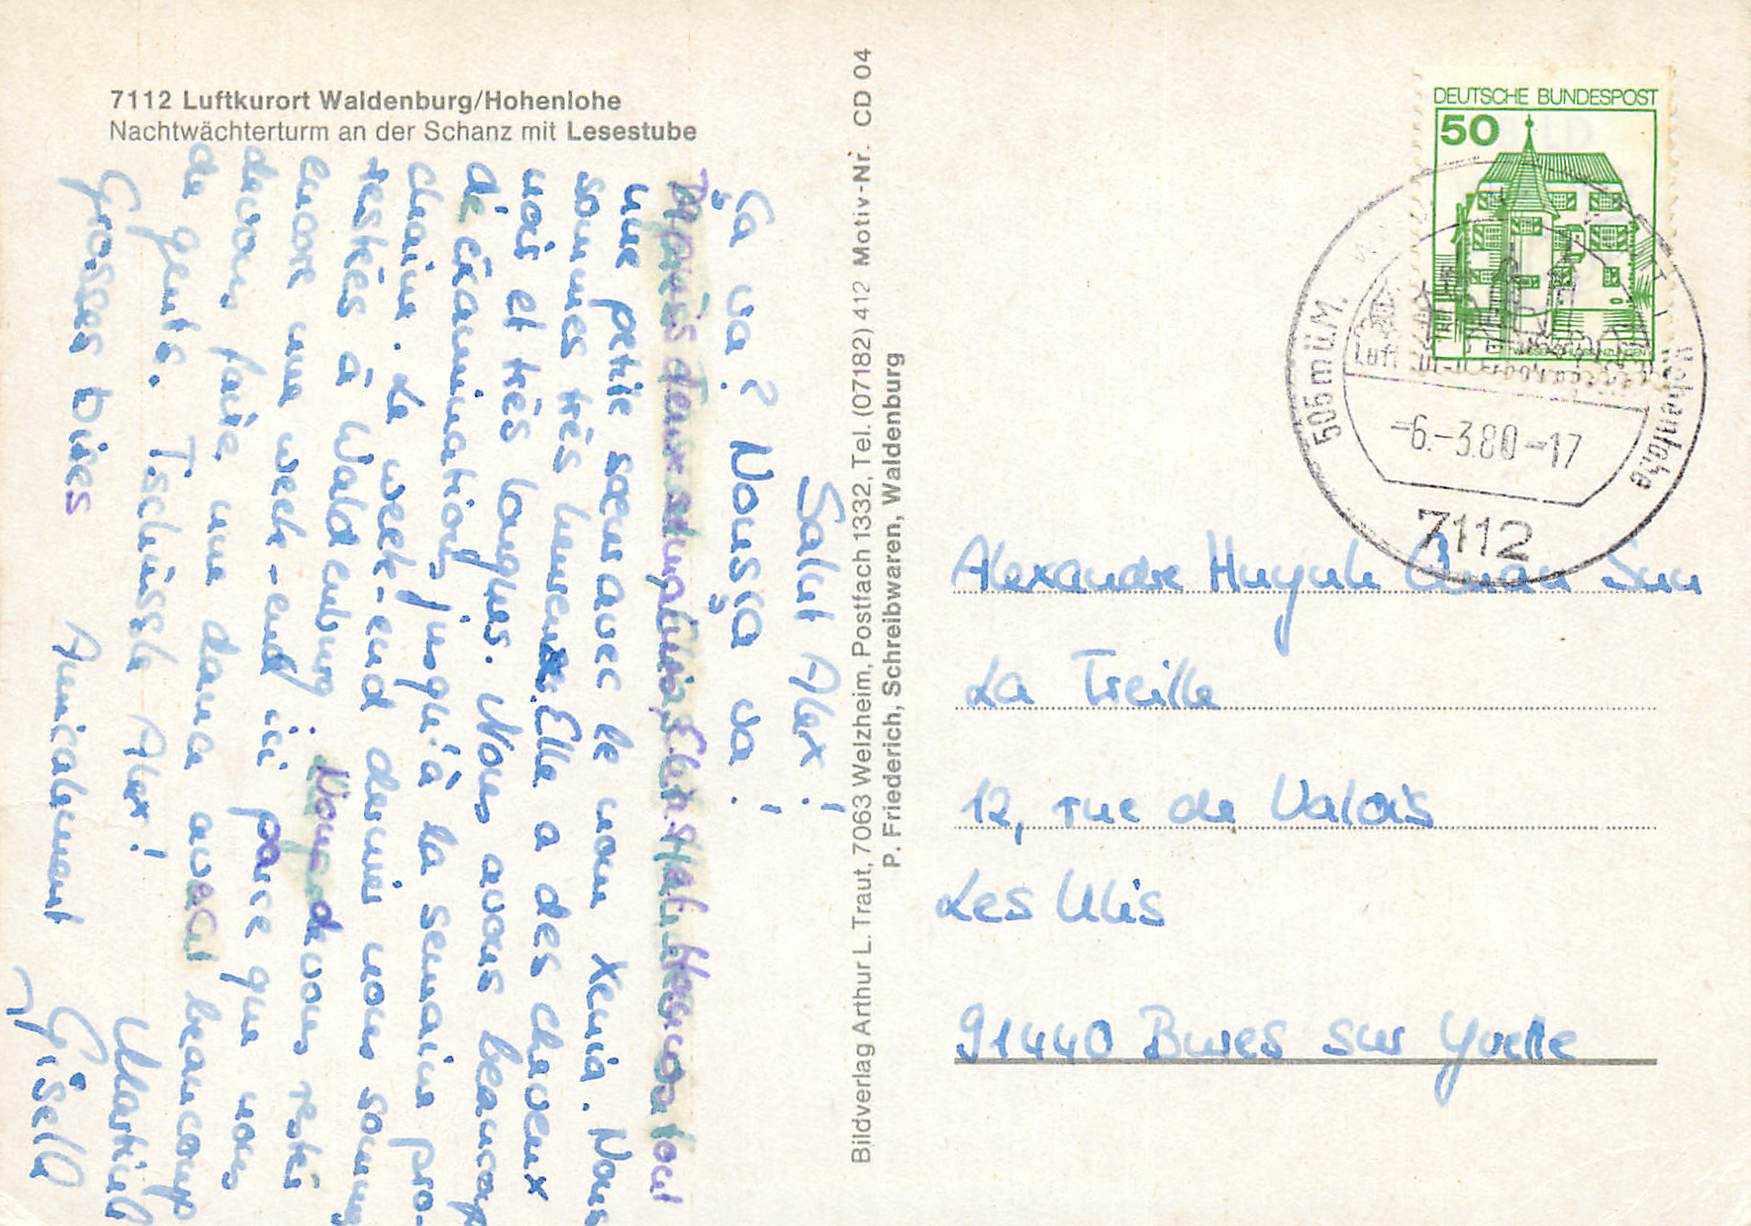 7112 Luftkurort Waldenburg/Hohenlohe
Nachtwächterturm an der Schanz mit Lesestube
Salut Alex!
Ça va? Nous ça va!
Après deux
une petite sœur avec le nom Xenia. Nous
sommes très Elle a des cheveux
noirs et très longues. Nous avons beaucoup
de éxaminations jusqu'à la semaine pro-
chaine. Le week-end dernier nous sommes
restées à Waldenburg. Nous devons restés
encore une week-end ici parce que nous
devons faire une dance avec beaucoup
de gents. Tschüssle Alex!
Grosses bises Amicalement
Gisela
Bildverlag Arthur L. Traut, 7063 Welzheim, Postfach 1332, Tel. (07182) 412 Motiv-Nr. CD 04
P. Friederich, Schreibwaren, Waldenburg
DEUTSCHE BUNDESPOST
50
505 m ü.M.
Luft
Hohenlohe
-6.-3.80-17
7112
Alexandre
La Treille
12, rue de Valois
Les Ulis
91440 Bures sur Yvette